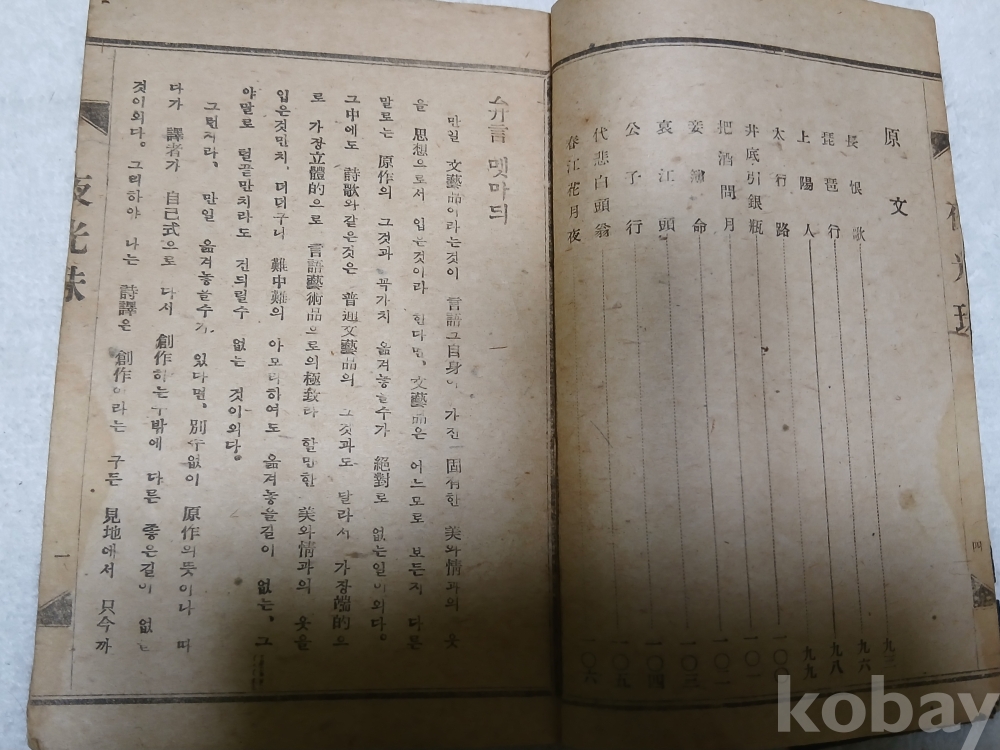 原文
長恨歌 九三
琵琶行 九六
上陽人 九八
太行路 九九
井底引銀瓶 一〇〇
把酒問月 一〇一
妾薄命
哀江頭 一〇三
公子行 一〇四
代悲白頭翁 一〇五
春江花月夜 一〇六
四
弁言 멧마듸
一
만일 文藝品이라는것이 言語그自身이 가진 固有한 美와情과의 옷
을 思想으로서 입은것이라 한다면, 文藝品은 어느모로 보든지 다른
말로는 原作의 그것과 꼭가치 옮겨놓을수가 絕對로 없는일이외다。
그中에도 詩歌와같은것은 普通文藝品의 그것과도 달라서 가장端的으
로 가장立體的으로 言語藝術品으로의極致라 할만한 美와情과의 옷을
입은것만치, 더더구나 難中難의 아모리하여도 옮겨놓을길이 없는, 그
야말로 털끝만치라도 건듸릴수 없는 것이외다。
그런지라, 만일 옮겨놓을수가 있다면, 別수없이 原作의뜻이나 따
다가 譯者가 自己式으로 다시 創作하는수밖에 다른 좋은길이 없는
것이외다。그리하야 나는 詩譯은 創作이라는 구든 見地에서 只今까
夜光珠
一
kobay